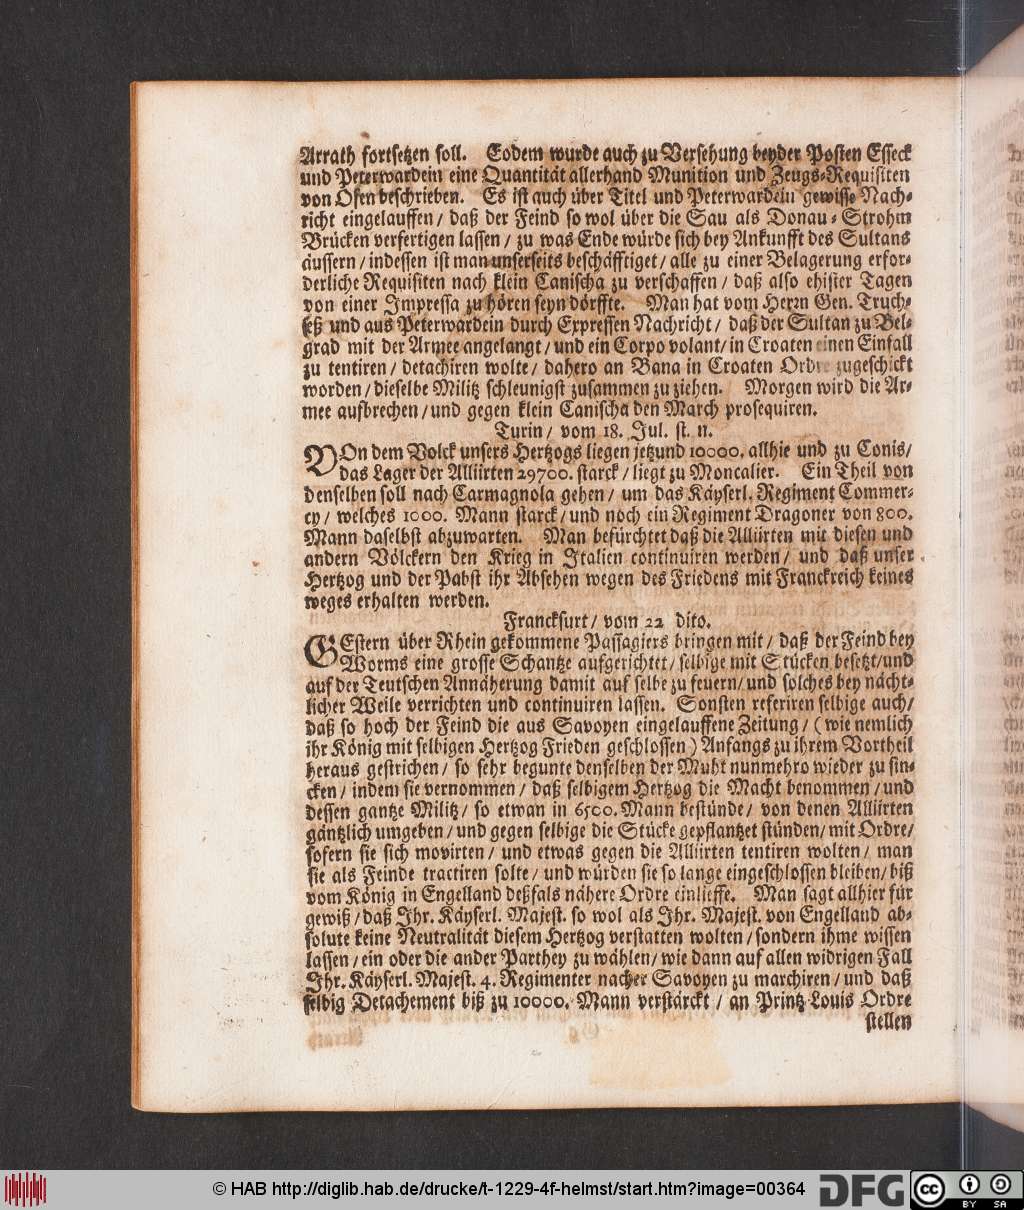 Arrath fortsetzen soll. Eodem wurde auch zu Versehung beyder Posten Esseck
und Peterwardein eine Quantität allerhand Munition und Zeugs-Requisiten
von Ofen beschrieben. Es ist auch über Titel und Peterwardein gewisse Nach-
richt eingelauffen / daß der Feind so wol über die Sau als Donau-Strohm
Brücken verfertigen lassen / zu was Ende würde sich bey Ankunfft des Sultans
äussern / indessen ist man unserseits beschäfftiget / alle zu einer Belagerung erfor-
derliche Requisiten nach klein Canischa zu verschaffen / daß also ehister Tagen
von einer Impressa zu hören seyn dörffte. Man hat vom Herrn Gen. Truch-
seß und aus Peterwardein durch Expressen Nachricht / daß der Sultan zu Bel-
grad mit der Armee angelangt / und ein Corpo volant / in Croaten einen Einfall
zu tentiren / detachiren wolte / dahero an Bana in Croaten Ordre zugeschickt
worden / dieselbe Militz schleunigst zusammen zu ziehen. Morgen wird die Ar-
mee aufbrechen / und gegen klein Canischa den March prosequiren.
Turin / vom 18. Jul. st. n.
VOn dem Volck unsers Hertzogs liegen jetzund 10000. allhie und zu Conis /
das Lager der Alliirten 29700. starck / liegt zu Moncalier. Ein Theil von
denselben soll nach Carmagnola gehen / um das Käyserl. Regiment Commer-
cy / welches 1000. Mann starck / und noch ein Regiment Dragoner von 800.
Mann daselbst abzuwarten. Man befürchtet daß die Alliirten mit diesen und
andern Völckern den Krieg in Italien continuiren werden / und daß unser
Hertzog und der Pabst ihr Absehen wegen des Friedens mit Franckreich keines
weges erhalten werden.
Franckfurt / vom 22 dito.
GEstern über Rhein gekommene Passagiers bringen mit / daß der Feind bey
Worms eine grosse Schantze aufgerichtet / selbige mit Stücken besetzt / und
auf der Teutschen Annäherung damit auf selbe zu feuern / und solches bey nächt-
licher Weile verrichten und continuiren lassen. Sonsten referiren selbige auch /
daß so hoch der Feind die aus Savoyen eingelauffene Zeitung / (wie nemlich
ihr König mit selbigen Hertzog Frieden geschlossen) Anfangs zu ihrem Vortheil
heraus gestrichen / so sehr begunte denselben der Muht nunmehro wieder zu sin-
cken / indem sie vernommen / daß selbigem Hertzog die Macht benommen / und
dessen gantze Militz / so etwan in 6500. Mann bestünde / von denen Alliirten
gäntzlich umgeben / und gegen selbige die Stücke gepflantzet stünden / mit Ordre /
sofern sie sich movirten / und etwas gegen die Alliirten tentiren wolten / man
sie als Feinde tractiren solte / und würden sie so lange eingeschlossen bleiben / biß
vom König in Engelland deßfals nähere Ordre einlieffe. Man sagt allhier für
gewiß / daß Ihr. Käyserl. Majest. so wol als Ihr. Majest. von Engelland ab-
solute keine Neutralität diesem Hertzog verstatten wolten / sondern ihme wissen
lassen / ein oder die ander Parthey zu wählen / wie dann auf allen widrigen Fall
Ihr. Käyserl. Majest. 4. Regimenter nacher Savoyen zu marchiren / und daß
selbig Detachement biß zu 10000. Mann verstärckt / an Printz Louis Ordre
stellen
© HAB http://diglib.hab.de/drucke/t-1229-4f-helmst/start.htm?image=00364
DFG
cc BY SA